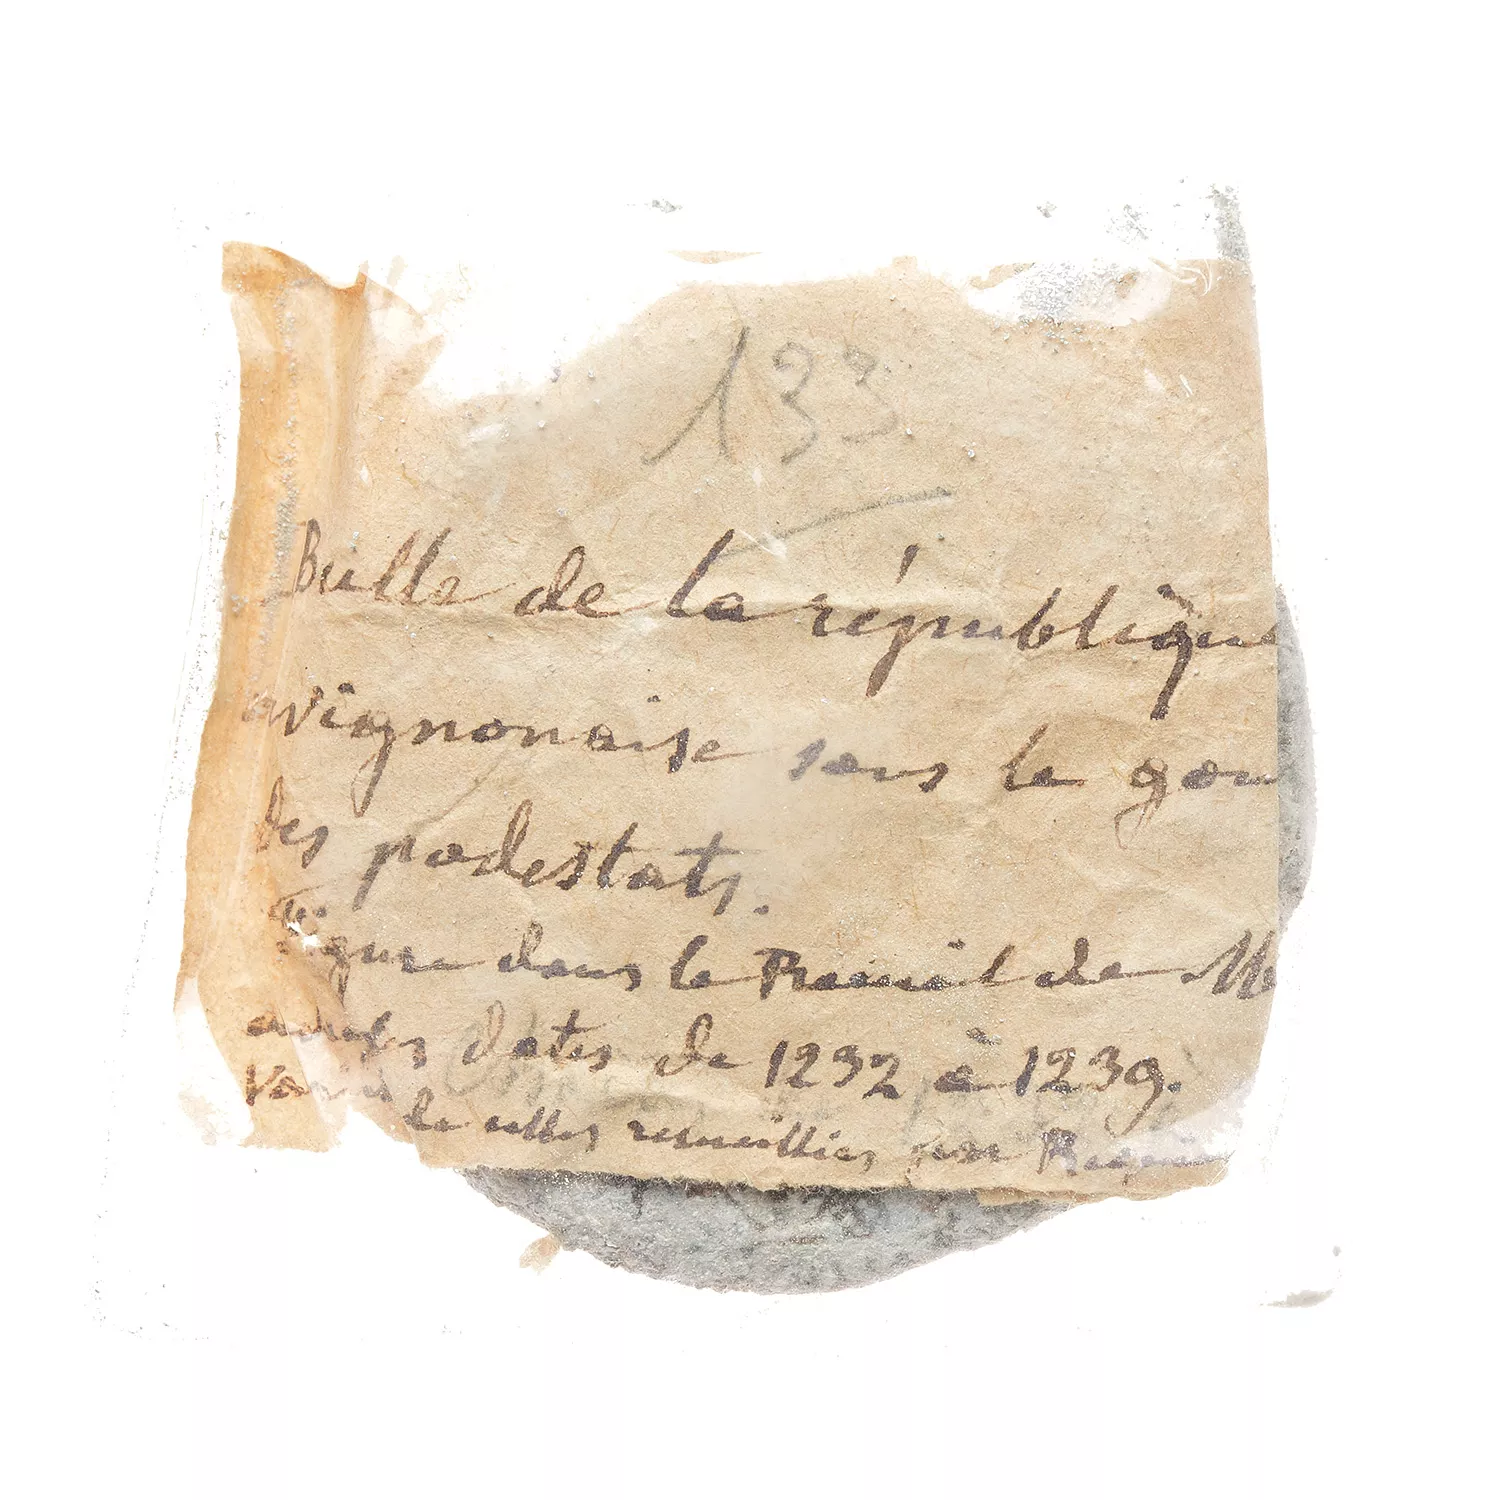 133
Bulle de la république
avignonaise sous le gou
des podestats.
Figure dans le Recueil de
actes datés de 1232 à 1239.
de celles recueillies par